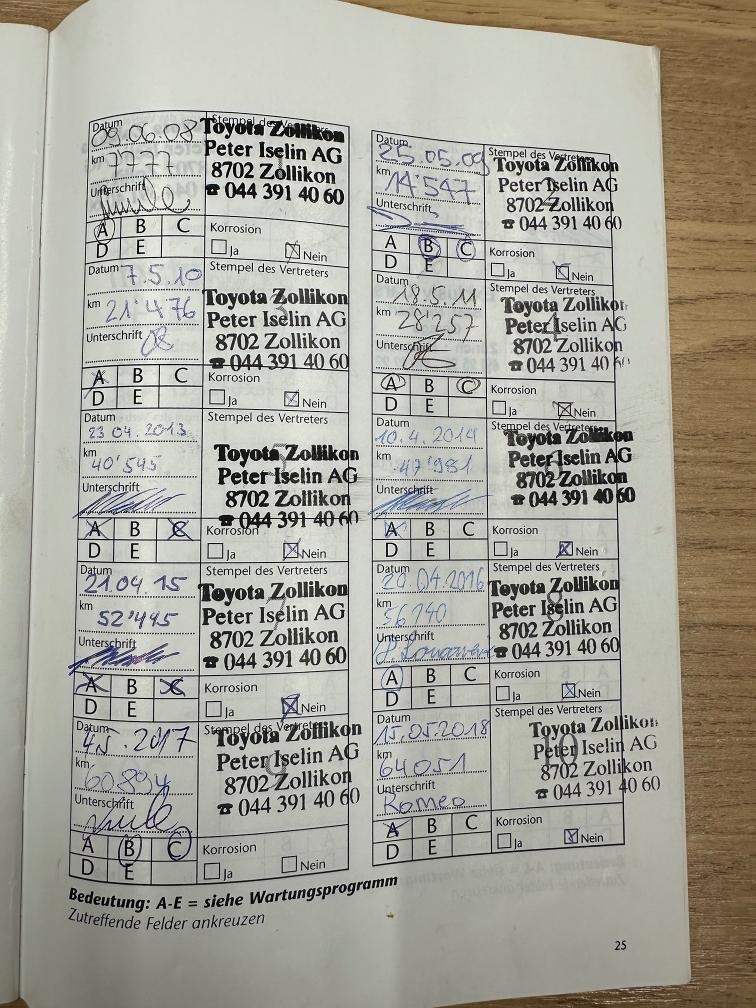 Datum 09.06.08 Stempel des Vertreters
Toyota Zollikon
km 7777 Peter Iselin AG
8702 Zollikon
Unterschrift ☎ 044 391 40 60
1
A B C Korrosion
D E Ja Nein
Datum 25.05.09 Stempel des Vertreters
Toyota Zollikon
km 14'547 Peter Iselin AG
Unterschrift 8702 Zollikon
☎ 044 391 40 60
2
A B C Korrosion
D E Ja Nein
Datum 7.5.10 Stempel des Vertreters
km 21'476 Toyota Zollikon
Peter Iselin AG
Unterschrift 8702 Zollikon
☎ 044 391 40 60
3
A B C Korrosion
D E Ja Nein
Datum 18.5.11 Stempel des Vertreters
km 28'257 Toyota Zollikon
Peter Iselin AG
Unterschrift 8702 Zollikon
☎ 044 391 40 60
4
A B C Korrosion
D E Ja Nein
Datum 23.04.2013 Stempel des Vertreters
km 40'545 Toyota Zollikon
Peter Iselin AG
Unterschrift 8702 Zollikon
☎ 044 391 40 60
5
A B C Korrosion
D E Ja Nein
Datum 10.4.2014 Stempel des Vertreters
Toyota Zollikon
km 47'981 Peter Iselin AG
Unterschrift 8702 Zollikon
☎ 044 391 40 60
6
A B C Korrosion
D E Ja Nein
Datum 21.04.15 Stempel des Vertreters
Toyota Zollikon
km 52'445 Peter Iselin AG
Unterschrift 8702 Zollikon
☎ 044 391 40 60
7
A B C Korrosion
D E Ja Nein
Datum 20.04.2016 Stempel des Vertreters
Toyota Zollikon
km 56140 Peter Iselin AG
Unterschrift 8702 Zollikon
☎ 044 391 40 60
8
A B C Korrosion
D E Ja Nein
Datum 4.5.2017 Stempel des Vertreters
Toyota Zollikon
km 60894 Peter Iselin AG
Unterschrift 8702 Zollikon
☎ 044 391 40 60
9
A B C Korrosion
D E Ja Nein
Datum 15.05.2018 Stempel des Vertreters
Toyota Zollikon
km 64051 Peter Iselin AG
Unterschrift Romeo 8702 Zollikon
☎ 044 391 40 60
10
A B C Korrosion
D E Ja Nein
Bedeutung: A-E = siehe Wartungsprogramm
Zutreffende Felder ankreuzen
25